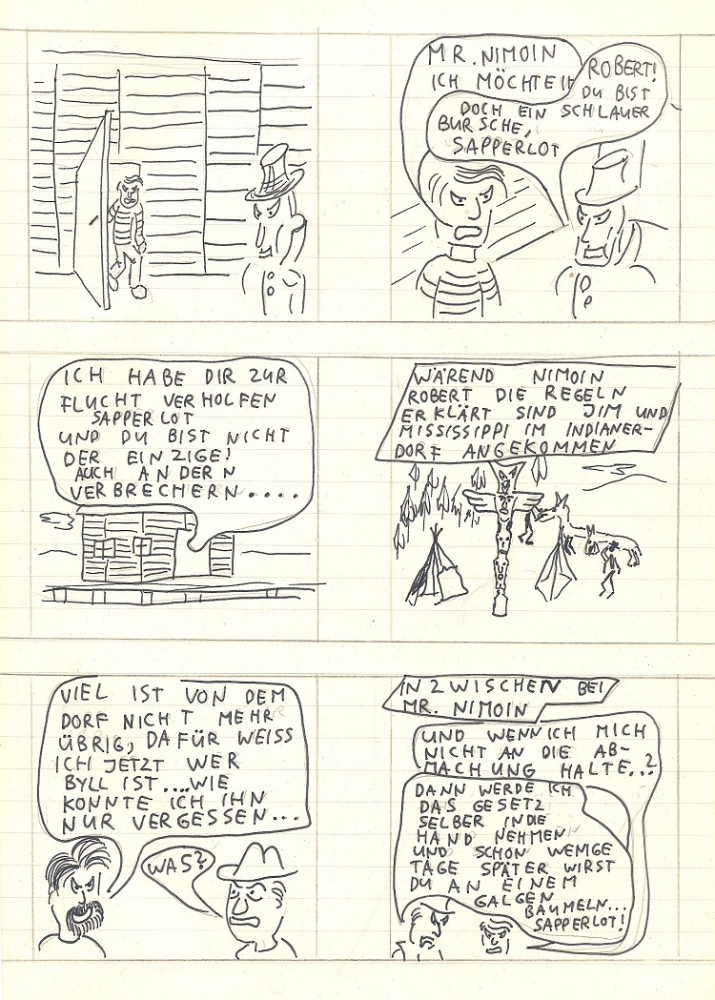 MR. NIMOIN
ICH MÖCHTE IH
ROBERT!
DU BIST
DOCH EIN SCHLAUER
BURSCHE,
SAPPERLOT
ICH HABE DIR ZUR
FLUCHT VERHOLFEN
SAPPERLOT
UND DU BIST NICHT
DER EINZIGE!
AUCH ANDERN
VERBRECHERN....
WÄREND NIMOIN
ROBERT DIE REGELN
ERKLÄRT SIND JIM UND
MISSISSIPPI IM INDIANER-
DORF ANGEKOMMEN
VIEL IST VON DEM
DORF NICHT MEHR
ÜBRIG, DAFÜR WEISS
ICH JETZT WER
BYLL IST....WIE
KONNTE ICH IHN
NUR VERGESSEN...
WAS?
IN ZWISCHEN BEI
MR. NIMOIN
UND WENN ICH MICH
NICHT AN DIE AB-
MACHUNG HALTE...?
DANN WERDE ICH
DAS GESETZ
SELBER IN DIE
HAND NEHMEN
UND SCHON WENIGE
TAGE SPÄTER WIRST
DU AN EINEM
GALGEN
BAUMELN...
SAPPERLOT!